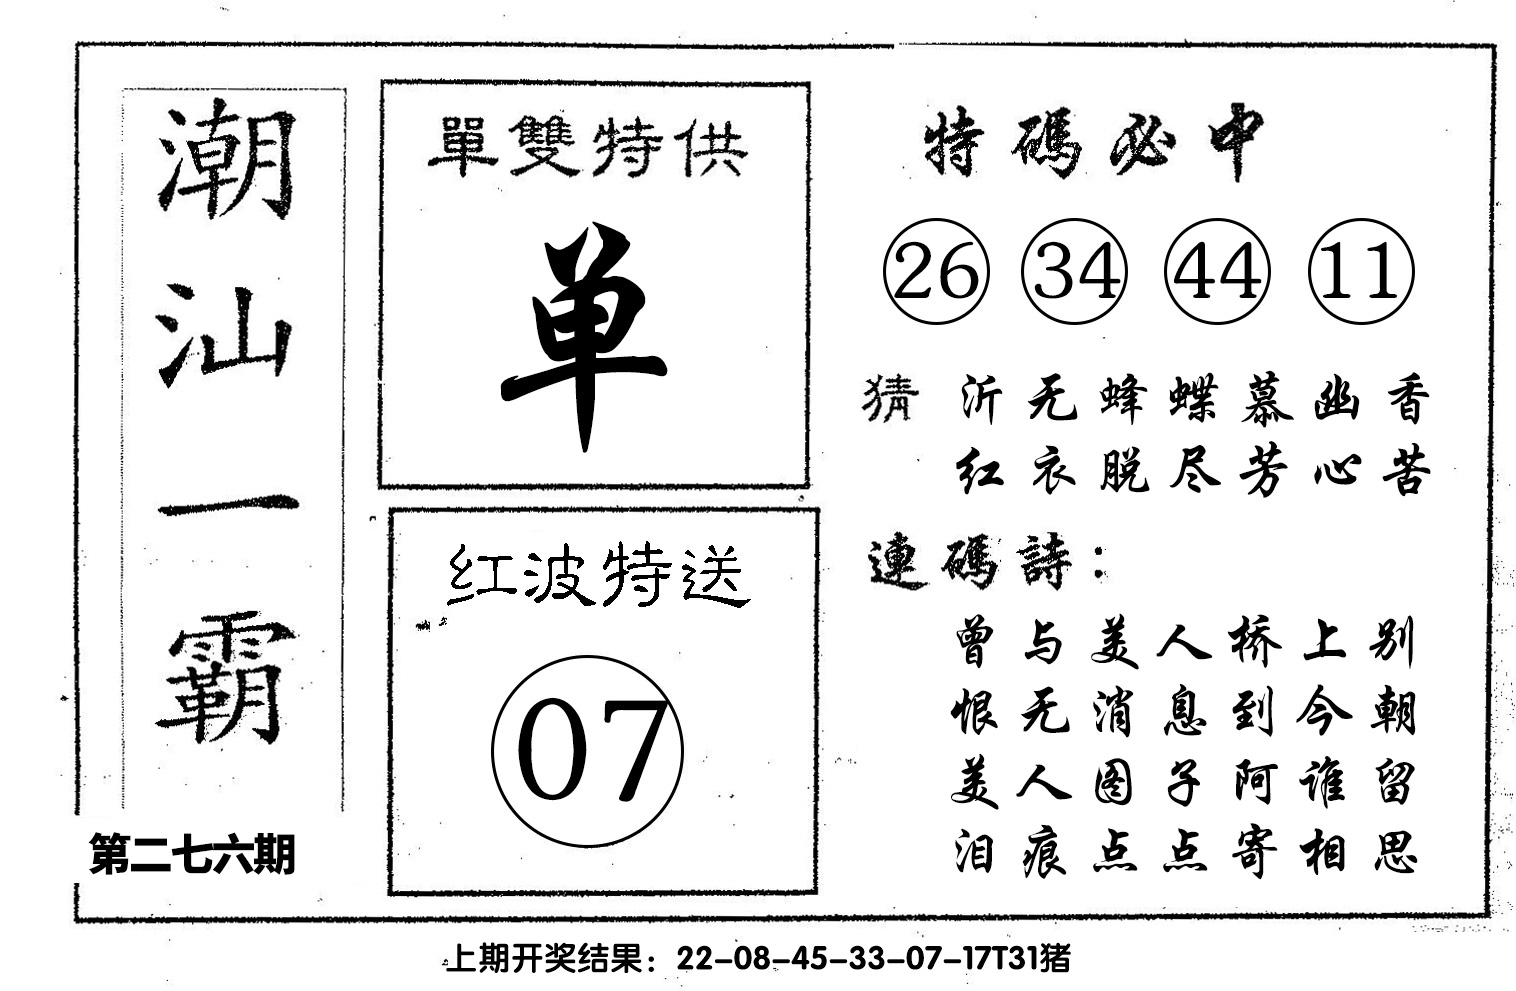 潮汕一霸
第二七六期
單雙特供
单
红波特送
07
特碼必中
26 34 44 11
猜 沂无蜂蝶慕幽香
红衣脱尽芳心苦
連碼詩：
曾与美人桥上别
恨无消息到今朝
美人图子阿谁留
泪痕点点寄相思
上期开奖结果：22-08-45-33-07-17T31猪